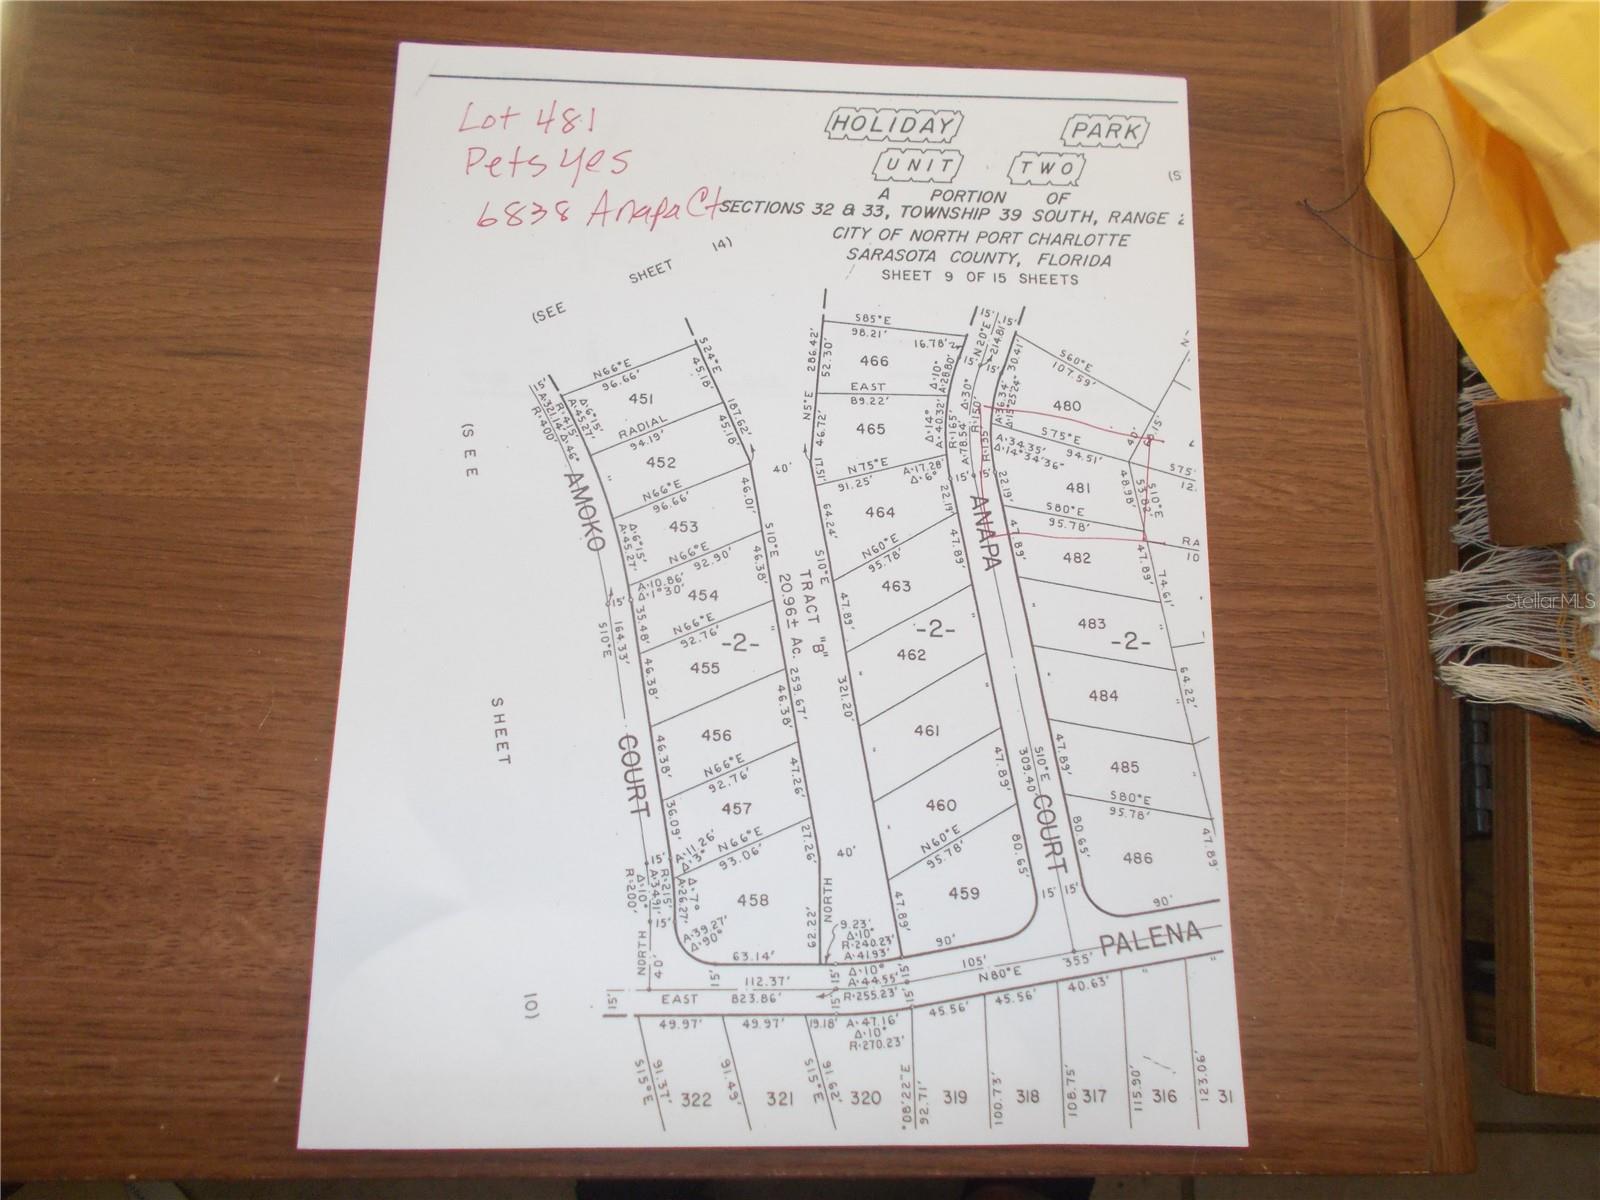 Lot 481
Pets Yes
6838 Anapa Ct
HOLIDAY PARK
UNIT TWO
(S
A PORTION OF
SECTIONS 32 & 33, TOWNSHIP 39 SOUTH, RANGE 2
CITY OF NORTH PORT CHARLOTTE
SARASOTA COUNTY, FLORIDA
SHEET 9 OF 15 SHEETS
(SEE SHEET 14)
(SEE SHEET 10)
15'
Δ·6°15'
A·45.27'
R·415'
A·321.14'
Δ·46°
R·400'
N66°E
96.66'
451
S24°E
45.18'
RADIAL
94.19'
187.62'
45.18'
452
N66°E
96.66'
46.01'
453
Δ·6°15'
A·45.27'
N66°E
92.90'
S10°E
46.38'
A·10.86'
Δ·1°30'
454
35.48'
15'
164.33'
S10°E
N66°E
92.76'
-2-
455
46.38'
46.38'
456
46.38'
N66°E
92.76'
47.26'
457
36.09'
A·11.26'
Δ·3°
N66°E
93.06'
27.26'
458
Δ·7°
A·26.27'
R·215'
15'
A·34.91'
Δ·10°
R·200'
15'
A·39.27'
Δ·90°
62.22'
63.14'
AMOKO COURT
40'
TRACT "B"
20.96± Ac.
259.67'
321.20'
40'
NORTH
286.42'
52.30'
N5°E
46.72'
17.51'
S85°E
98.21'
16.78'
466
EAST
89.22'
465
N75°E
91.25'
A·17.28'
Δ·6°
464
64.24'
S10°E
N60°E
95.78'
463
47.89'
-2-
462
461
460
N60°E
95.78'
459
47.89'
90'
80.65'
47.89'
47.89'
22.19'
Δ·10°
A·28.80'
Δ·14°
A·40.32'
R·165'
Δ·30°
A·78.54'
R·150'
R·135'
15' 15'
N20°E
214.81'
30.41'
15'
15' 15'
S60°E
107.59'
480
A·36.34'
Δ·15°25'24"
S75°E
94.51'
A·34.35'
Δ·14°34'36"
40'
15'
S75°
12.
481
22.19'
48.98'
S10°E
53.82'
S80°E
95.78'
47.89'
482
RA
10
47.89'
74.61'
483
-2-
484
64.22'
485
S80°E
95.78'
47.89'
47.89'
486
80.65'
90'
S10°E
309.40'
15' 15'
ANAPA COURT
PALENA
9.23'
Δ·10°
R·240.23'
A·41.93'
Δ·10°
A·44.55'
R·255.23'
15'
15'
15'
15'
105'
N80°E
355'
NORTH
4.0'
15'
112.37'
EAST 823.86'
15'
49.97'
49.97'
19.18'
A·47.16'
Δ·10°
R·270.23'
45.56'
45.56'
40.63'
S15°E
91.37'
322
91.49'
321
S15°E
91.62'
320
°08'22"E
92.71'
319
100.73'
318
108.75'
317
115.90'
316
123.06'
31
StellarMLS